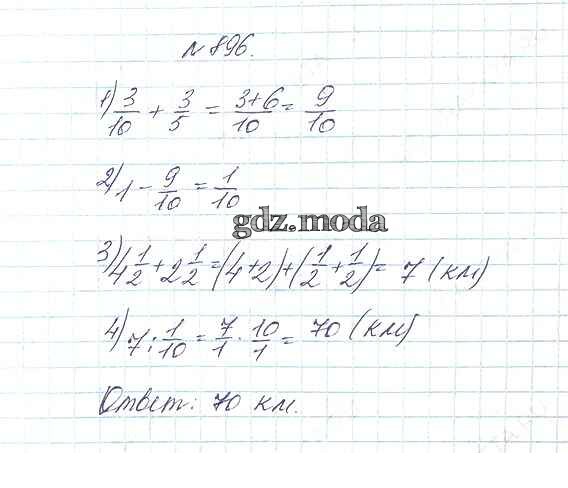 № 896.
1) 3/10 + 3/5 = (3+6)/10 = 9/10
2) 1 - 9/10 = 1/10
gdz.moda
3) 4 1/2 + 2 1/2 = (4+2)+(1/2+1/2) = 7 (км)
4) 7 : 1/10 = 7/1 · 10/1 = 70 (км)
Ответ: 70 км.